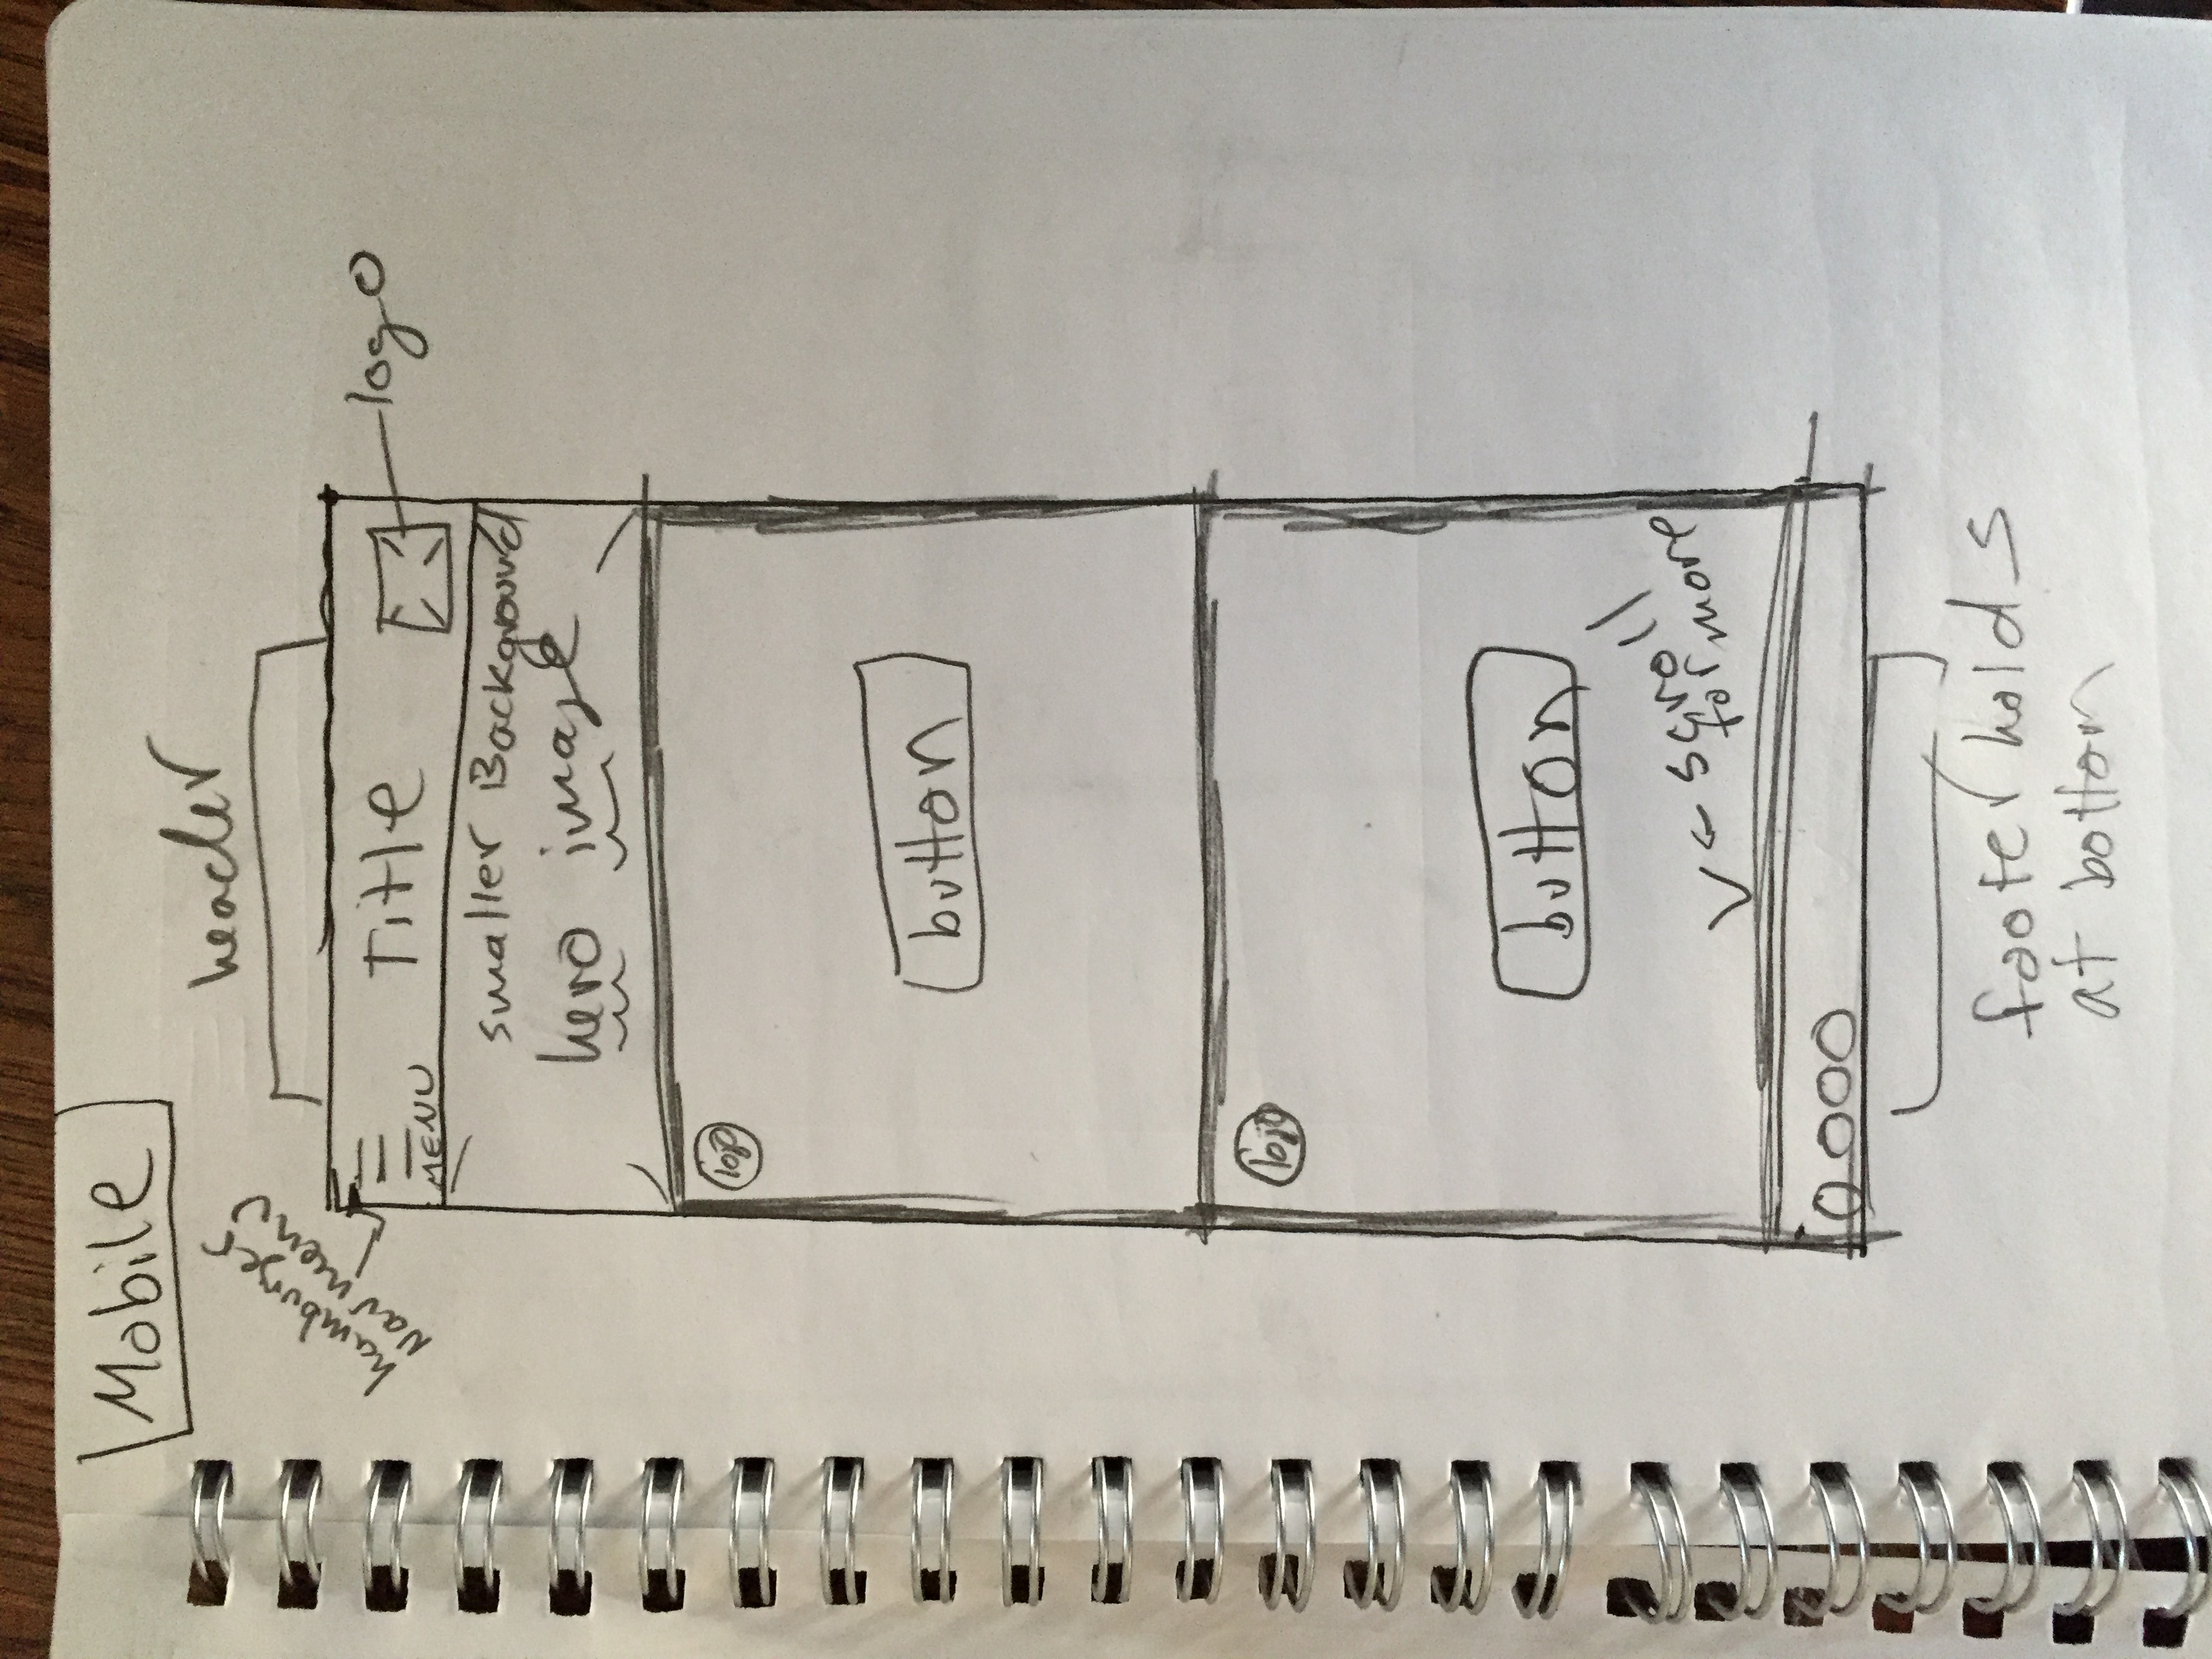 Mobile
header
hamburger
Nav menu
MENU
Title
logo
smaller Background
hero image
logo
button
logo
button
scroll
for more
footer holds
at bottom